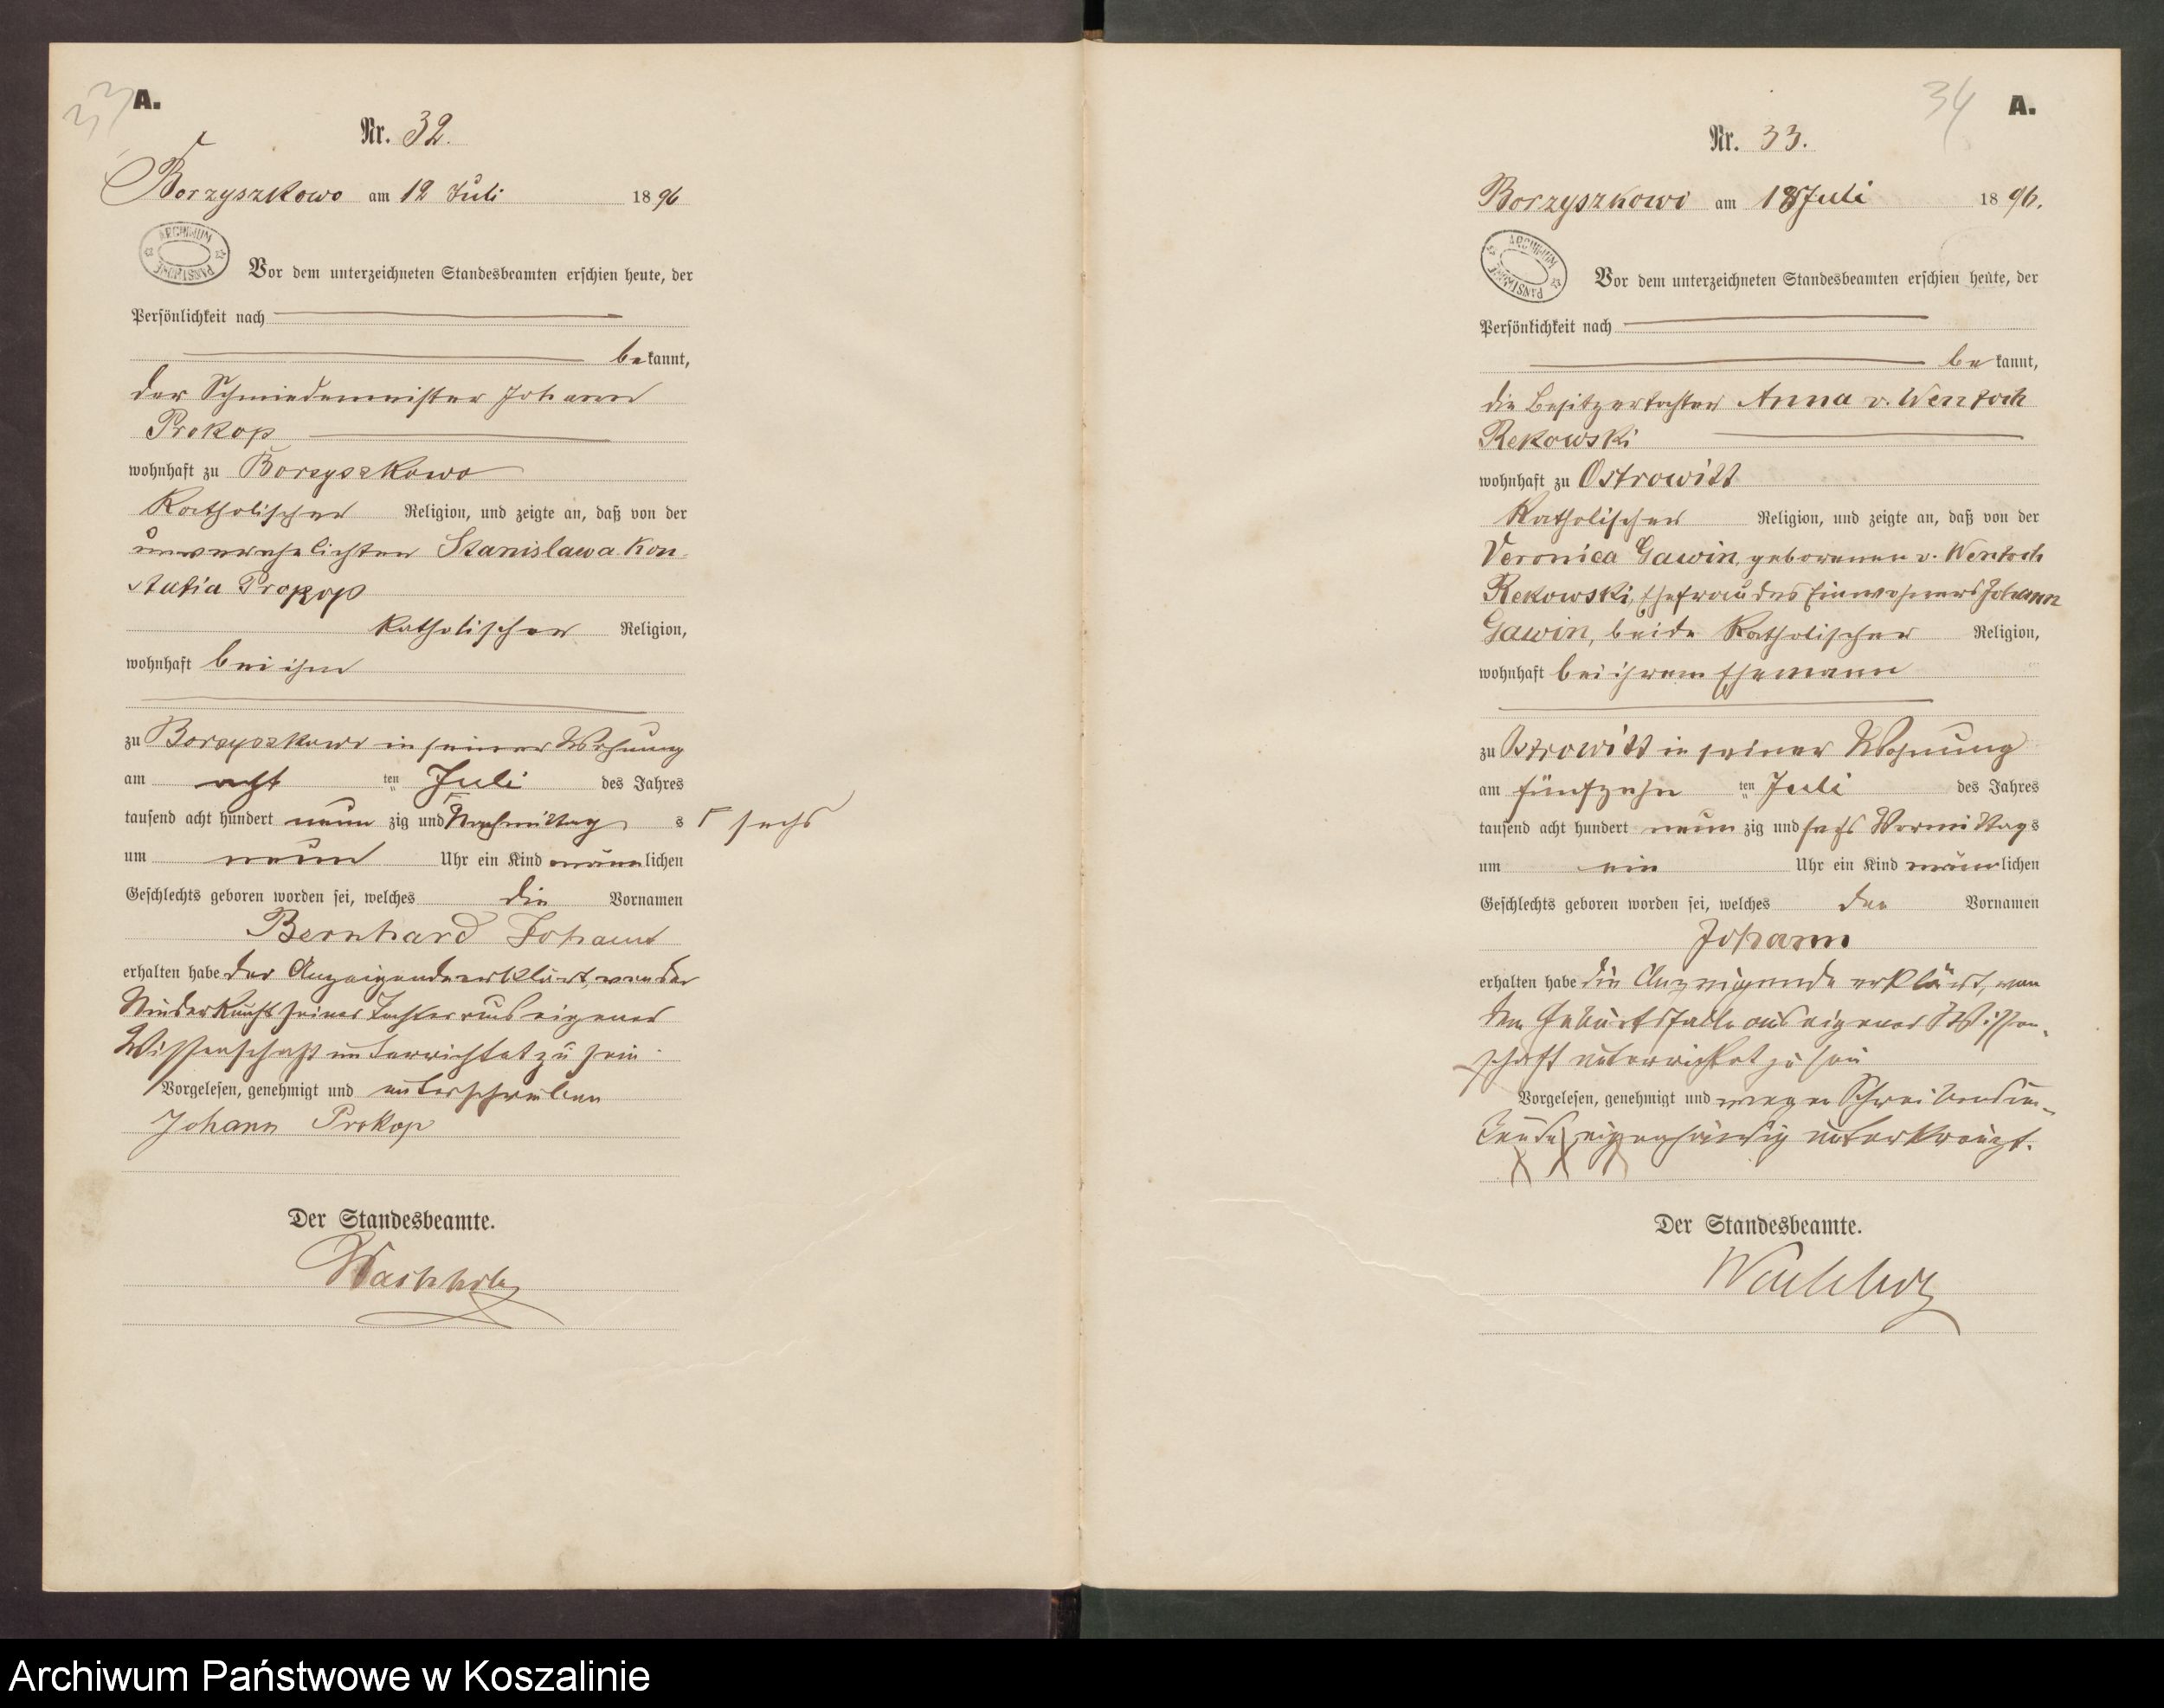 33
A.
Nr. 32.
Borzyszkowo am 12 Juli 1896
ARCHIWUM PAŃSTWOWE
Vor dem unterzeichneten Standesbeamten erschien heute, der
Persönlichkeit nach
bekannt,
der Schmiedemeister Johann
Prokop
wohnhaft zu Borzyszkowo
katholischer Religion, und zeigte an, daß von der
unverehelichten Stanislawa Kon-
stantia Prokop
katholischer Religion,
wohnhaft bei ihm
zu Borzyszkowo in seiner Wohnung
am acht ten Juli des Jahres
tausend acht hundert neun zig und Nachmittag s Γ sechs
um neun Uhr ein Kind männlichen
Geschlechts geboren worden sei, welches die Vornamen
Bernhard Johann
erhalten habe der Anzeigende erklärt, von der
Niederkunft seiner Tochter aus eigener
Wissenschaft unterrichtet zu sein.
Vorgelesen, genehmigt und unterschrieben
Johann Prokop
Der Standesbeamte.
Wachholz
34
A.
Nr. 33.
Borzyszkowo am 18 Juli 1896.
ARCHIWUM PAŃSTWOWE
Vor dem unterzeichneten Standesbeamten erschien heute, der
Persönlichkeit nach
bekannt,
die Besitzertochter Anna v. Wentoch
Rekowski
wohnhaft zu Ostrowitt
katholischer Religion, und zeigte an, daß von der
Veronica Gawin, geborenen v. Wentoch
Rekowski, Ehefrau des Einwohners Johann
Gawin, beide katholischer Religion,
wohnhaft bei ihrem Ehemann
zu Ostrowitt in seiner Wohnung
am fünfzehn ten Juli des Jahres
tausend acht hundert neun zig und sechs Vormittags
um ein Uhr ein Kind männlichen
Geschlechts geboren worden sei, welches den Vornamen
Johann
erhalten habe die Anzeigende erklärt, von
dem Geburtsfalle aus eigener Wissen-
schaft unterrichtet zu sein
Vorgelesen, genehmigt und wegen Schreibensun-
kunde eigenhändig unterkreuzt.
X X X
Der Standesbeamte.
Wachholz
Archiwum Państwowe w Koszalinie